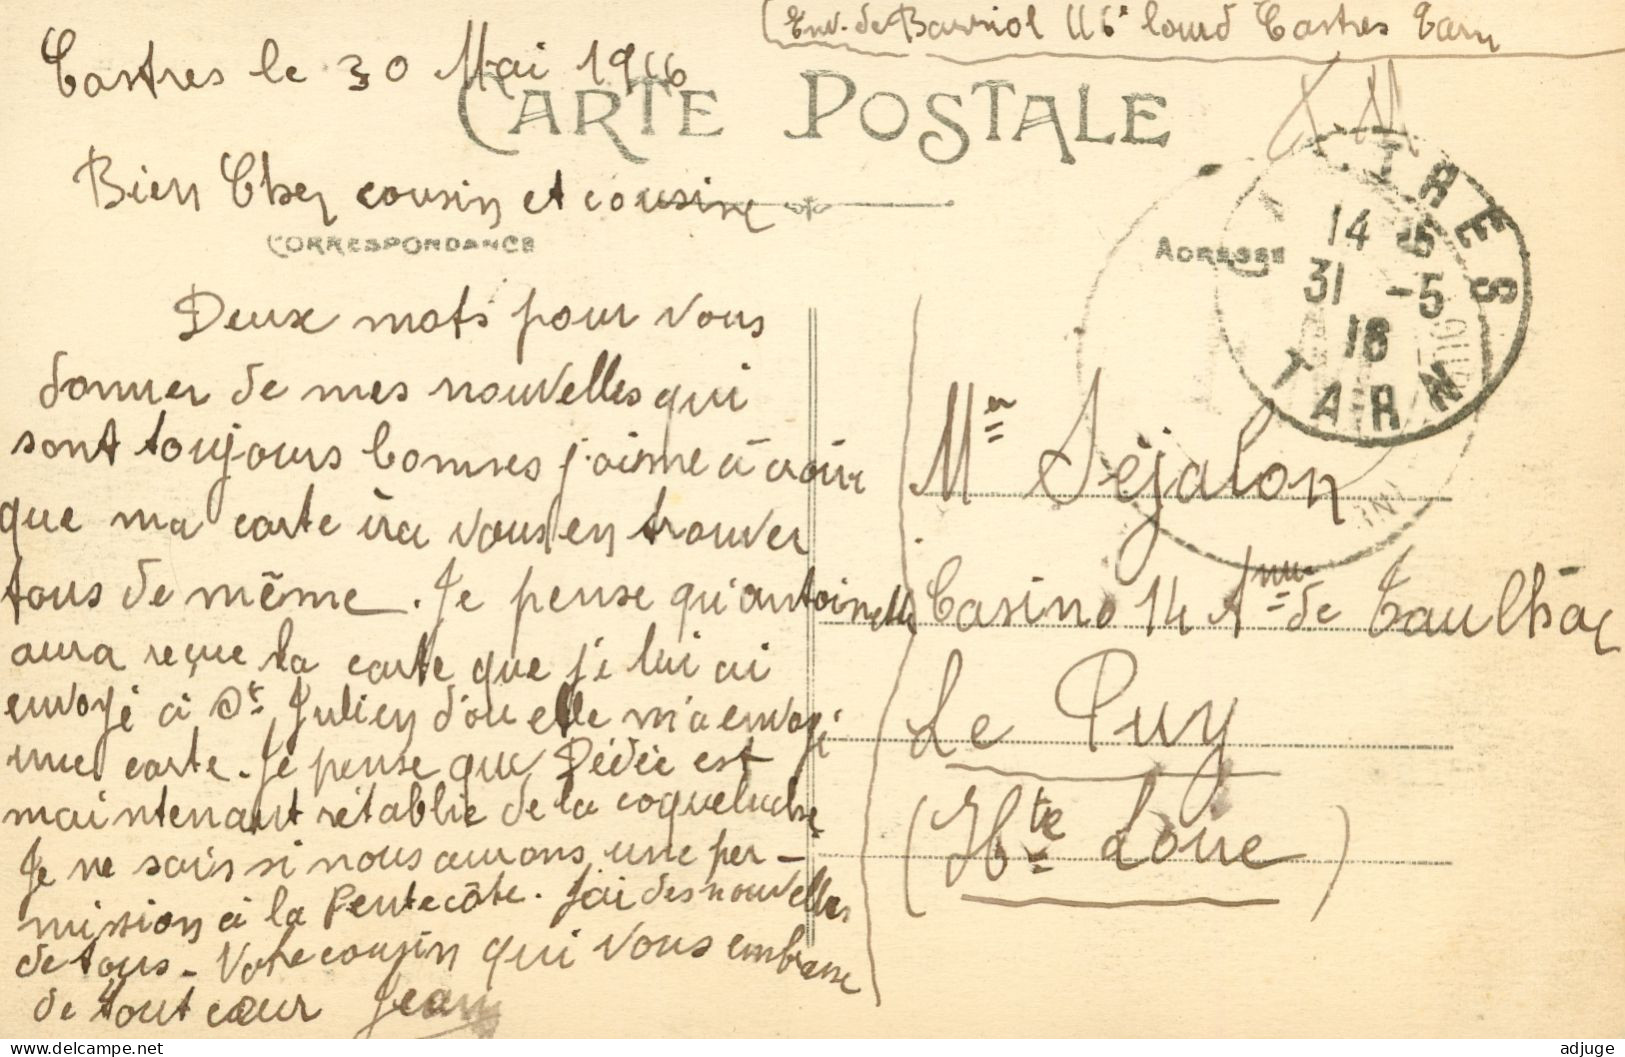 Env. de Barriol 116e lourd Castres Tarn
Castres le 30 Mai 1916
CARTE POSTALE
Bien Cher cousin et cousine
CORRESPONDANCE
Deux mots pour vous
donner de mes nouvelles qui
sont toujours bonnes j'aime à croire
que ma carte ira vous en trouver
tous de même. Je pense qu'antoinette
aura reçue la carte que je lui ai
envoyé à St Julien d'ou elle m'a envoyé
une carte. Je pense que Dédée est
maintenant rétablie de la coqueluche
Je ne sais si nous aurons une per-
mission à la Pentecôte. J'ai des nouvelles
de tous - Votre cousin qui vous embrasse
de tout cœur Jean
ADRESSE
TRES
14 -5
31 -5
16
TARN
Mr Séjalon
Casino 14 Avnue de Taulhac
Le Puy
(Hte Loire)
www.delcampe.net
adjuge